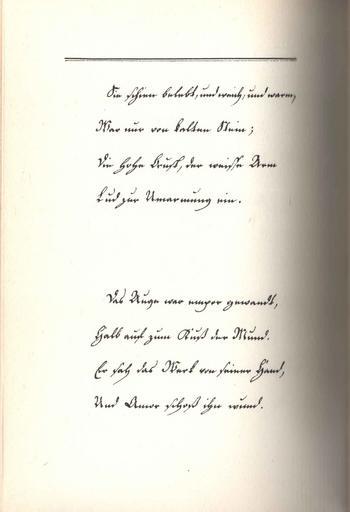 Sie schien belebt, und weich, und warm,
War nur von kalten Stein;
Die hohe Brust, der weisse Arm
Lud zur Umarmung ein.
Das Auge war empor gewandt,
Halb auf zum Kuß der Mund.
Er sah das Werk von seiner Hand,
Und Amor schoß ihn wund.